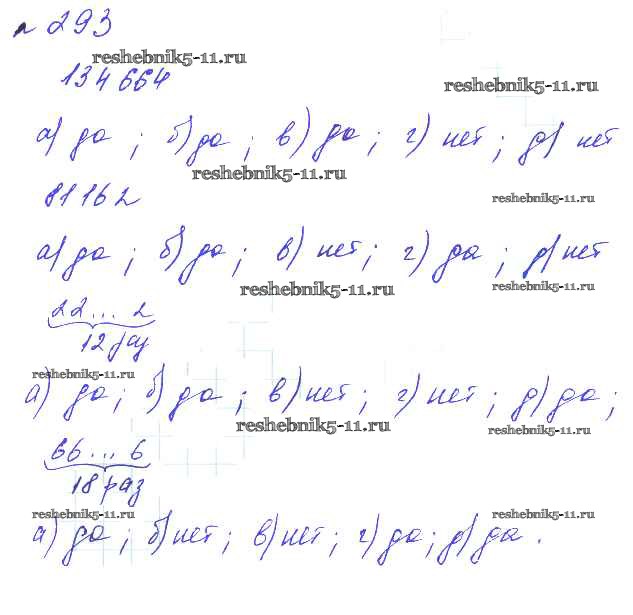 № 293
reshebnik5-11.ru
134664
reshebnik5-11.ru
а) да ; б) да ; в) да ; г) нет ; д) нет
reshebnik5-11.ru
81162
reshebnik5-11.ru
а) да ; б) да ; в) нет ; г) да ; д) нет
reshebnik5-11.ru
reshebnik5-11.ru
22 ... 2
12 раз
reshebnik5-11.ru
а) да ; б) да ; в) нет ; г) нет ; д) да ;
reshebnik5-11.ru
reshebnik5-11.ru
66 ... 6
18 раз
reshebnik5-11.ru
reshebnik5-11.ru
reshebnik5-11.ru
а) да ; б) нет ; в) нет ; г) да ; д) да .